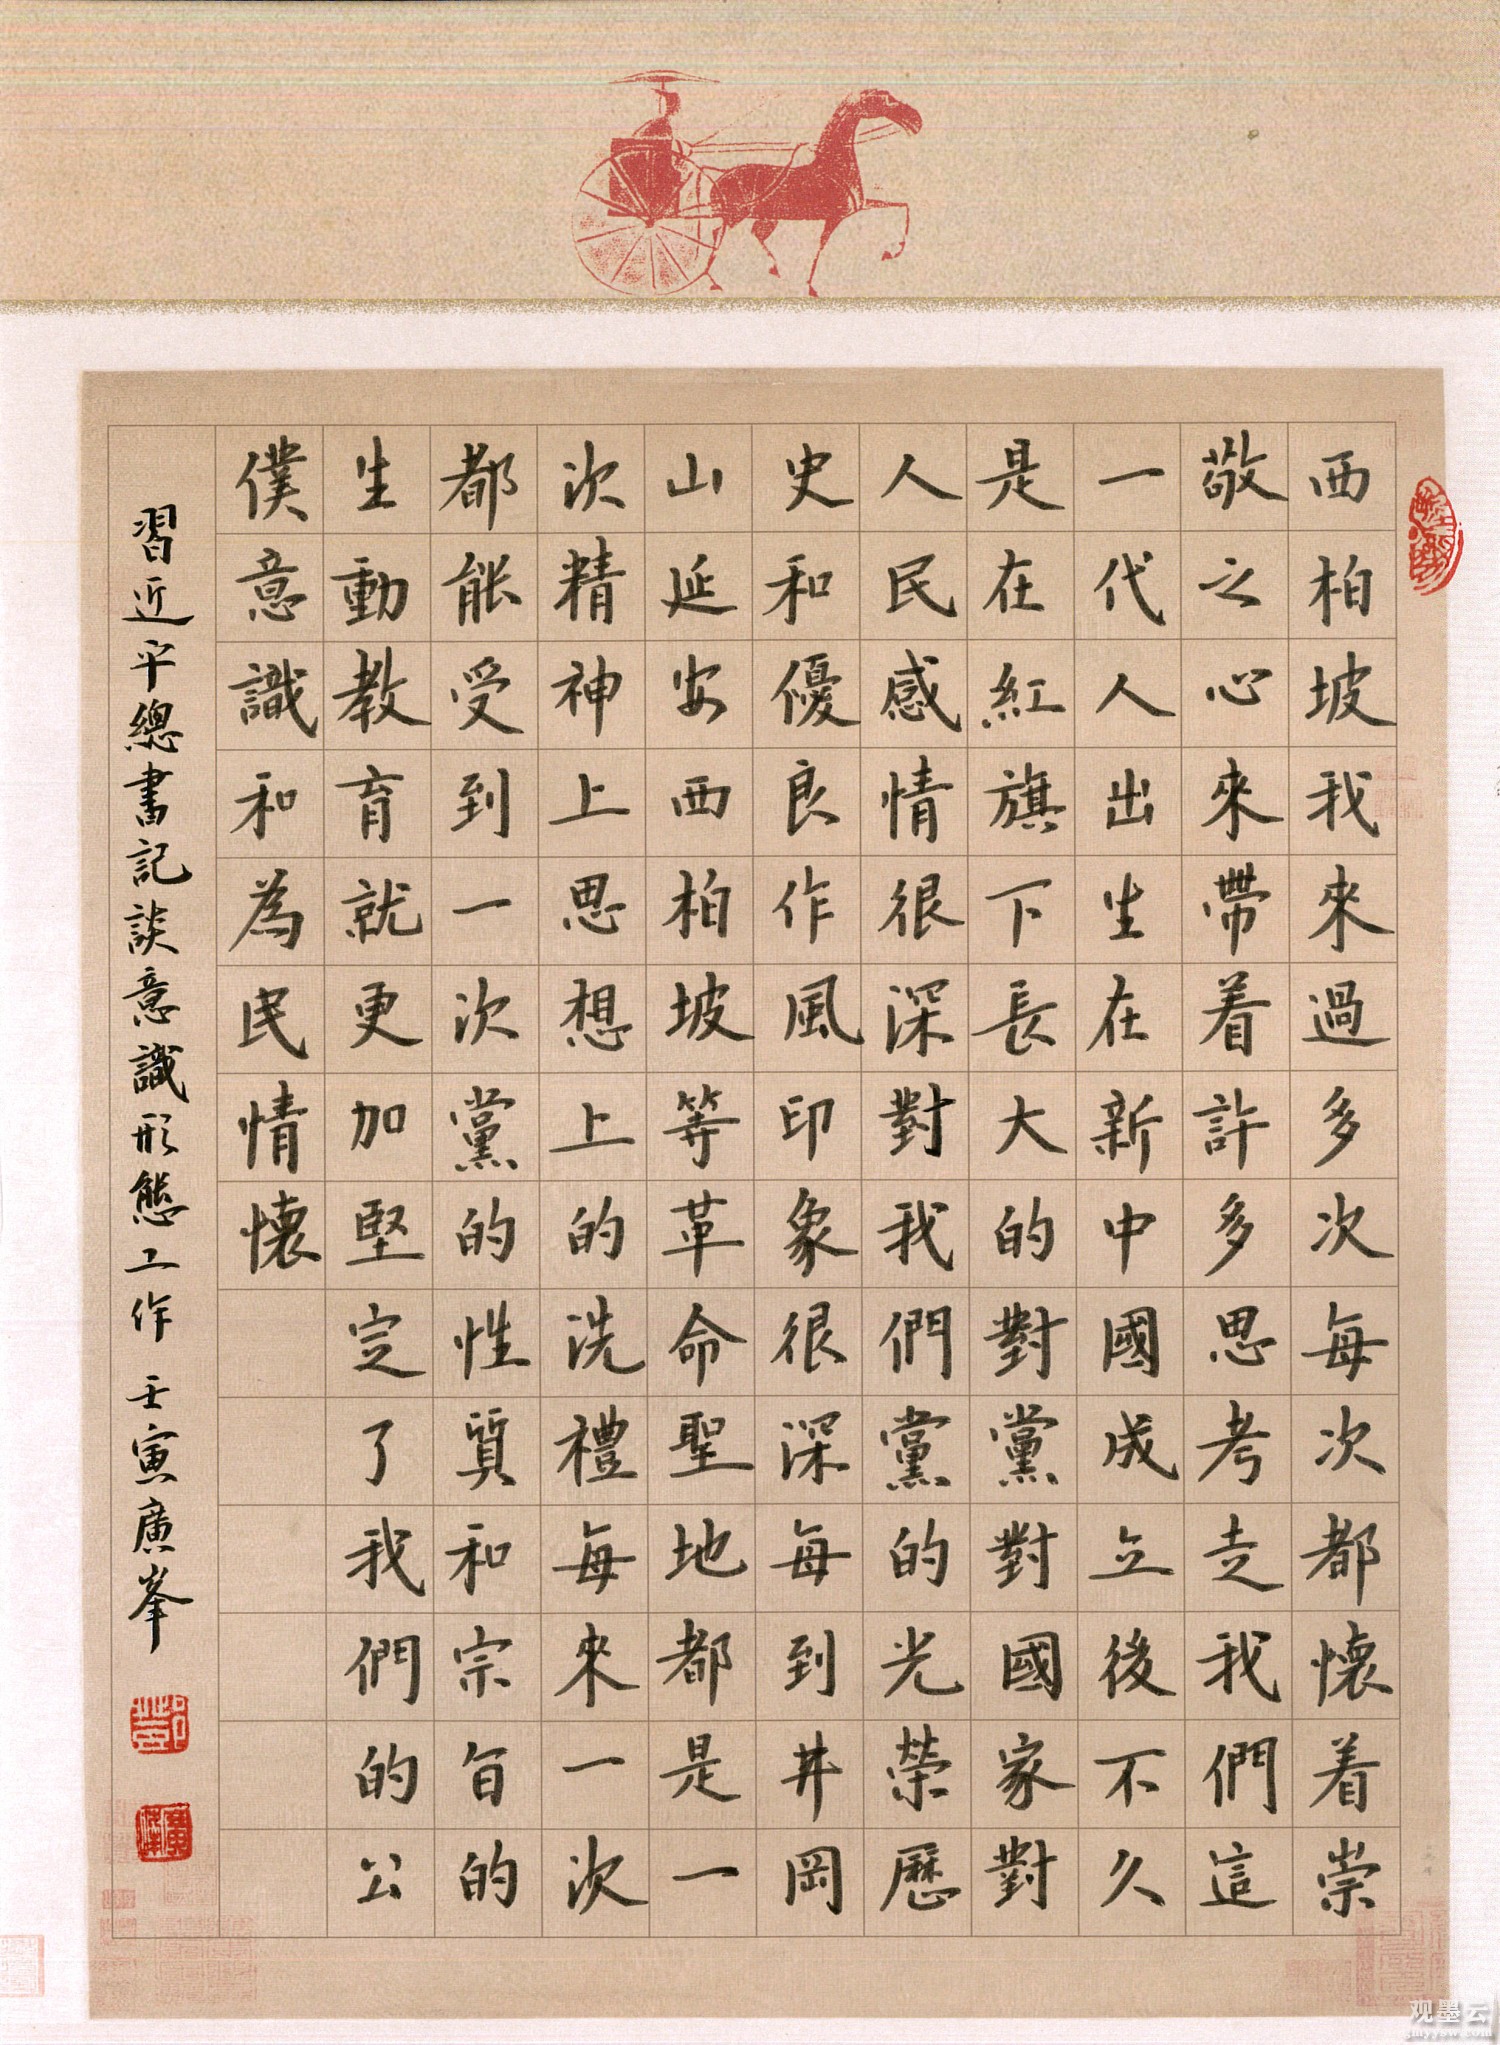 西柏坡我來過多次每次都懷着崇
敬之心來帶着許多思考走我們這
一代人出生在新中國成立後不久
是在紅旗下長大的對黨對國家對
人民感情很深對我們黨的光榮歷
史和優良作風印象很深每到井岡
山延安西柏坡等革命聖地都是一
次精神上思想上的洗禮每來一次
都能受到一次黨的性質和宗旨的
生動教育就更加堅定了我們的公
僕意識和為民情懷
習近平總書記談意識形態工作 壬寅廣峯
观墨云